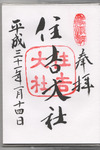 奉拝
住吉大社
住吉
大社
平成三十一年一月十四日